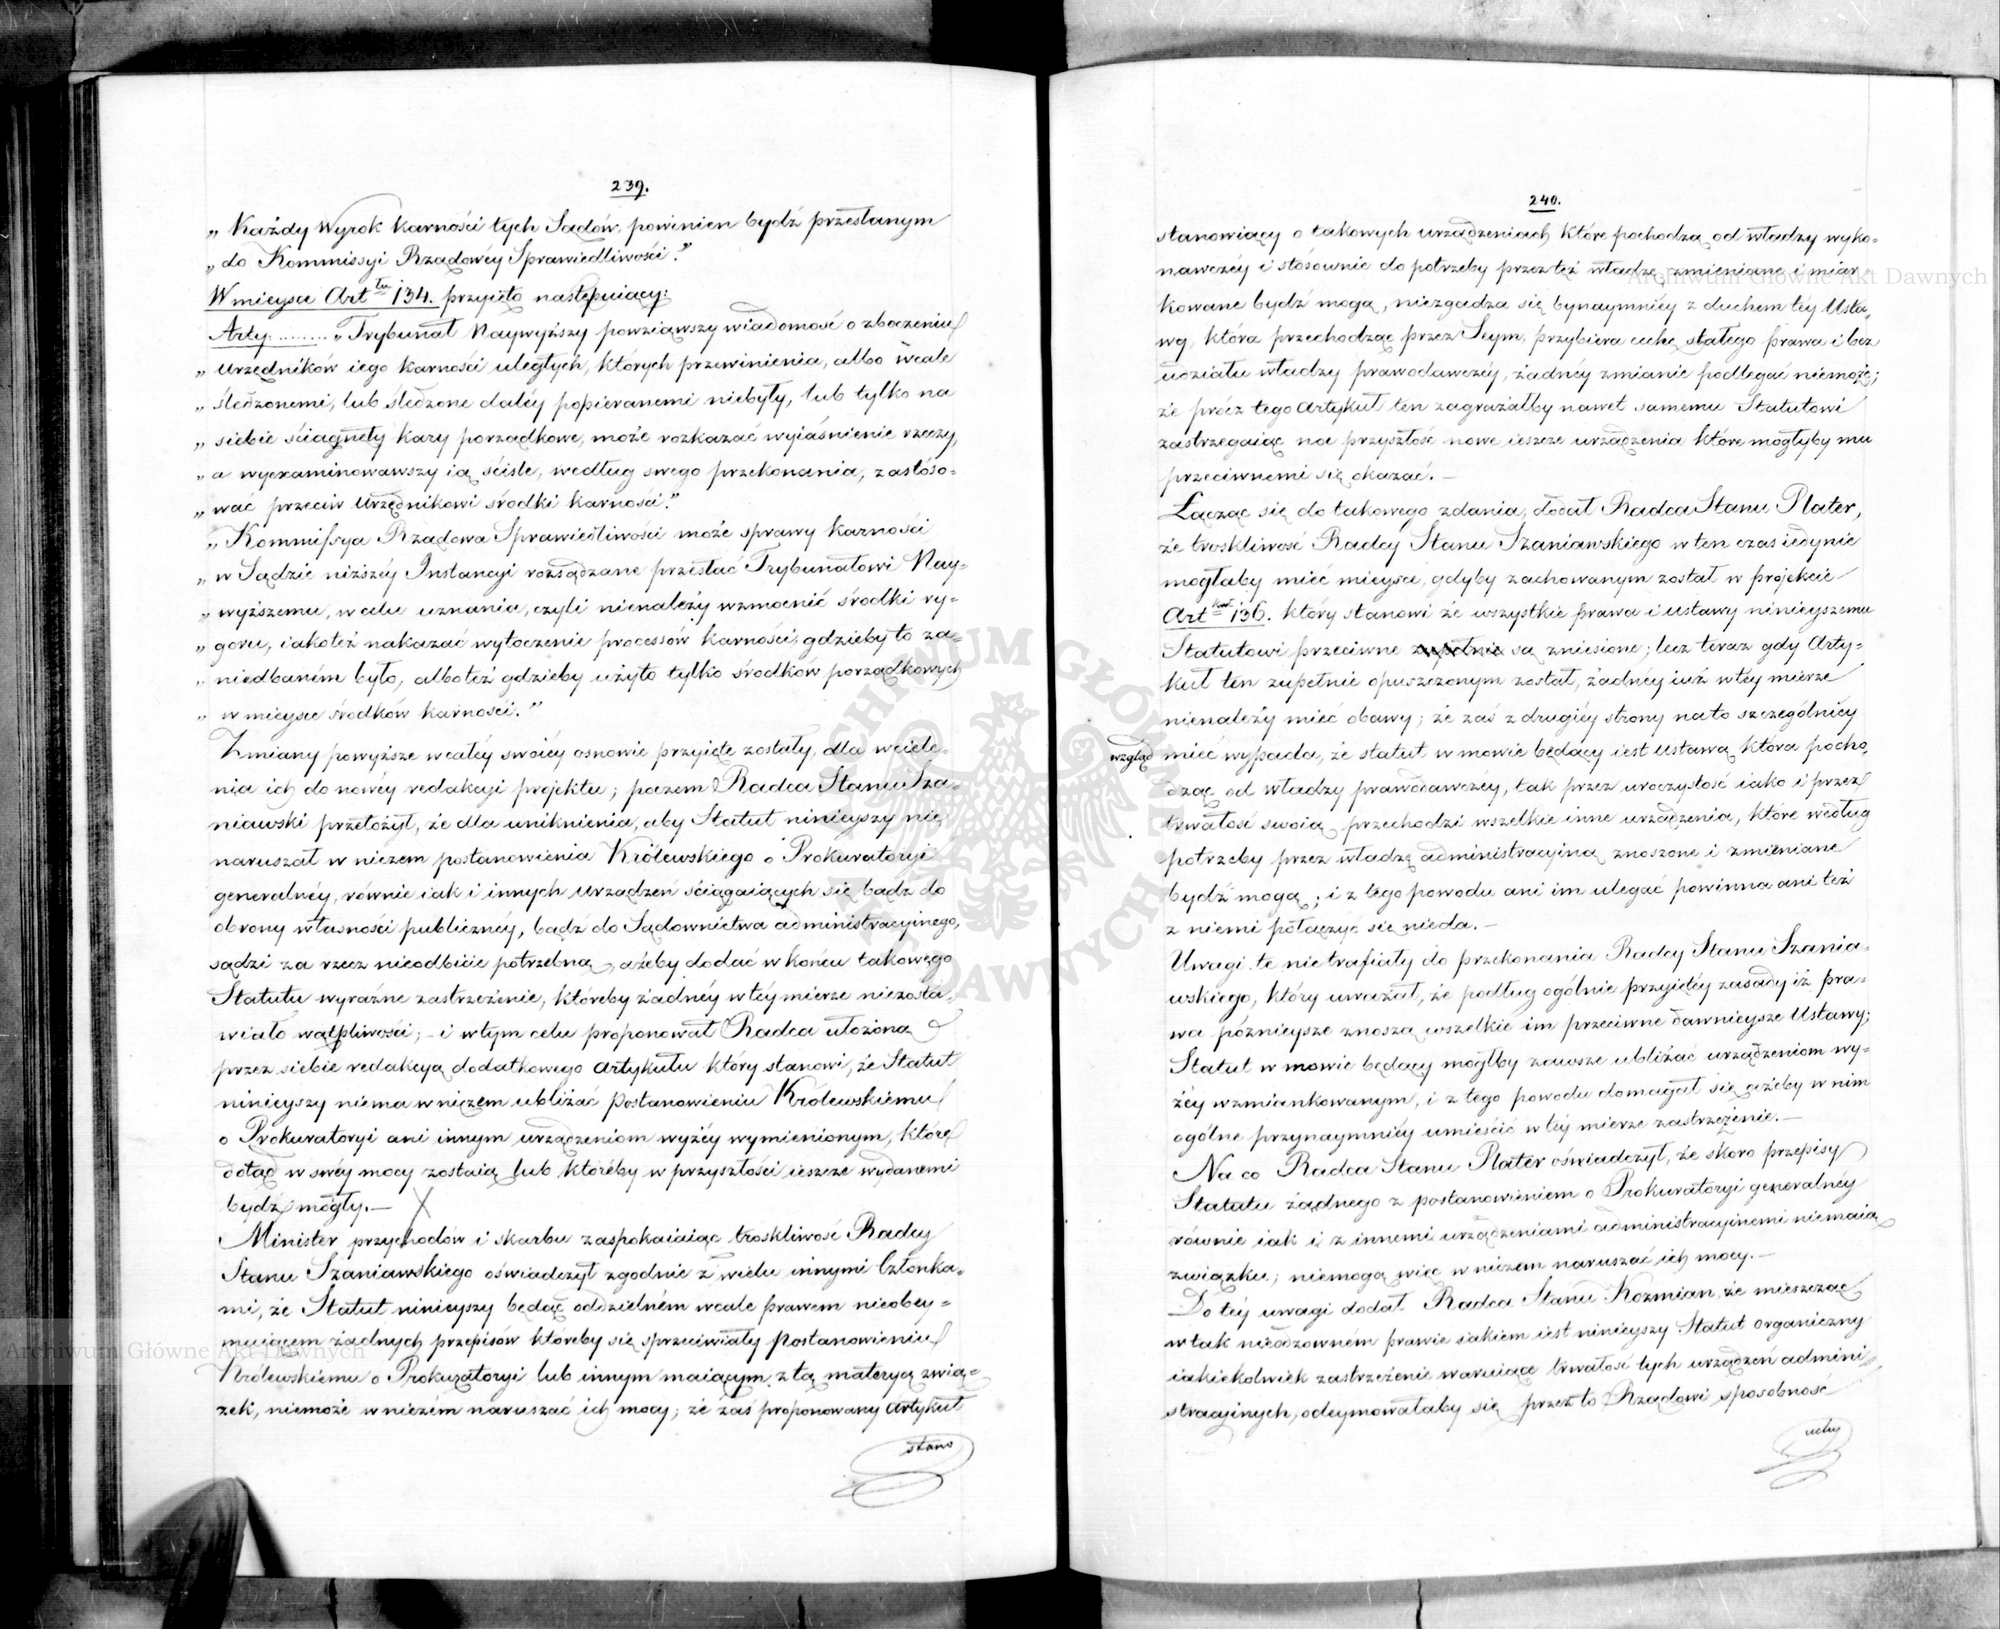 239.
„ Każdy Wyrok karności tych Sądów, powinien bydź przesłanym
„ do Kommissyi Rządowey Sprawiedliwości."
W mieysce Art tu 134. przyięto następuiący:
Arty ........ „Trybunał Naywyższy powziąwszy wiadomość o zboczeniu
„ Urzędników iego karności uległych, których przewinienia, albo wcale
„ śledzonemi, lub śledzone daléy popieranemi niebyły, lub tylko na
„ siebie ściągnęły kary porządkowe, może rozkazać wyiaśnienie rzeczy,
„ a wyexaminowawszy ią ściśle, według swego przekonania, zastóso=
„ wać przeciw Urzędnikowi środki karności."
„ Kommissya Rządowa Sprawiedliwości może sprawy karności
„ w Sądzie niższéy Instancyi rozsądzane przesłać Trybunałowi Nay=
„ wyższemu, w celu uznania, czyli nienależy wzmocnić środki ry=
„ goru, iakoteż nakazać wytoczenie processów karności, gdzieby to za=
„ niedbaném było, alboteż gdzieby użyto tylko środków porządkowych
„ w mieysce środków karności."
Zmiany powyższe w całéy swoiéy osnowie przyięte zostały, dla wciele=
nia ich do nowéy redakcyi projektu; poczem Radca Stanu Sza=
niawski przełożył, że dla uniknienia, aby Statut ninieyszy nie
naruszał w niczem postanowienia Królewskiego o Prokuratoryi
generalnéy, równie iak i innych urządzeń ściągaiących się bądź do
obrony własności publicznéy, bądź do Sądownictwa administracyinego,
sądzi za rzecz nieodbicie potrzebną, ażeby dodać w końcu takowego
Statutu wyraźne zastrzeżenie, któreby żadnéy w téy mierze niezosta=
wiało wątpliwości; – i w tym celu proponował Radca ułożoną
przez siebie redakcyą dodatkowego artykułu który stanowi, że Statut
ninieyszy niema w niczem ubliżać Postanowieniu Królewskiemu
o Prokuratoryi ani innym urządzeniom wyżéy wymienionym, które
dotąd w swéy mocy zostaią lub któreby w przyszłości ieszcze wydanemi
bydź mogły. –
Minister przychodów i skarbu zaspokaiaiąc troskliwość Radcy
Stanu Szaniawskiego oświadczył zgodnie z wielu innymi Członka=
mi, że Statut ninieyszy będąc oddzielném wcale prawem nieobey=
muiącem żadnych przepisów któreby się sprzeciwiały Postanowieniu
Królewskiemu o Prokuratoryi lub innym maiącym z tą materyą zwią=
zek, niemoże w niczém naruszać ich mocy; że zaś proponowany artykuł
stano
240.
stanowiący o takowych urządzeniach które pochodzą od władzy wyko=
nawczéy i stósownie do potrzeby przez też władzę zmieniane i miar
kowane bydź mogą, niezgadza się bynaymniéy z duchem téy Usta=
wy, która przechodząc przez Seym, przybiera cechę stałego prawa i bez
udziału władzy prawodawczéy, żadnéy zmianie podlegać niemoże;
że prócz tego artykuł ten zagrażałby nawet samemu Statutowi
zastrzegaiąc na przyszłość nowe ieszcze urządzenia które mogłyby mu
przeciwnemi się okazać. –
Łącząc się do takowego zdania, dodał Radca Stanu Plater,
że troskliwość Radcy Stanu Szaniawskiego w ten czas iedynie
mogłaby mieć mieysce, gdyby zachowanym został w projekcie
Art kuł 136. który stanowi że wszystkie prawa i ustawy ninieyszemu
Statutowi przeciwne zupełnie są zniesione; lecz teraz gdy Arty=
kuł ten zupełnie opuszczonym został, żadney iuż w téy mierze
nienależy mieć obawy; że zaś z drugiéy strony na to szczególniéy
wzgląd mieć wypada, że statut w mowie będący iest ustawą która pocho=
dząc od władzy prawodawczéy, tak przez uroczystość iako i przez
trwałość swoią przechodzi wszelkie inne urządzenia, które według
potrzeby przez władzę administracyiną znoszone i zmieniane
bydź mogą; i z tego powodu ani im ulegać powinna ani też
z niemi połączyć się nieda. –
Uwagi te nie trafiały do przekonania Radcy Stanu Szania=
wskiego, który uważał, że podług ogólnie przyiętéy zasady iż pra=
wa póznieysze znoszą wszelkie im przeciwne dawnieysze Ustawy;
Statut w mowie będący mógłby zawsze ubliżać urządzeniom wy=
żéy wzmiankowanym, i z tego powodu domagał się ażeby w nim
ogólne przynaymniéy umieścić w téy mierze zastrzeżenie. –
Na co Radca Stanu Plater oświadczył, że skoro przepisy
Statutu żadnego z postanowieniem o Prokuratoryi generalnéy
równie iak i z innemi urządzeniami administracyinemi niemaią
związku; niemogą więc w niczem naruszać ich mocy. –
Do téy uwagi dodał Radca Stanu Kozmian, że mieszcząc
w tak nieodzowném prawie iakiem iest ninieyszy Statut organiczny
iakiekolwiek zastrzeżenie waruiące trwałość tych urządzeń admini
stracyinych, odeymowałaby się przez to Rządowi sposobność
uchy